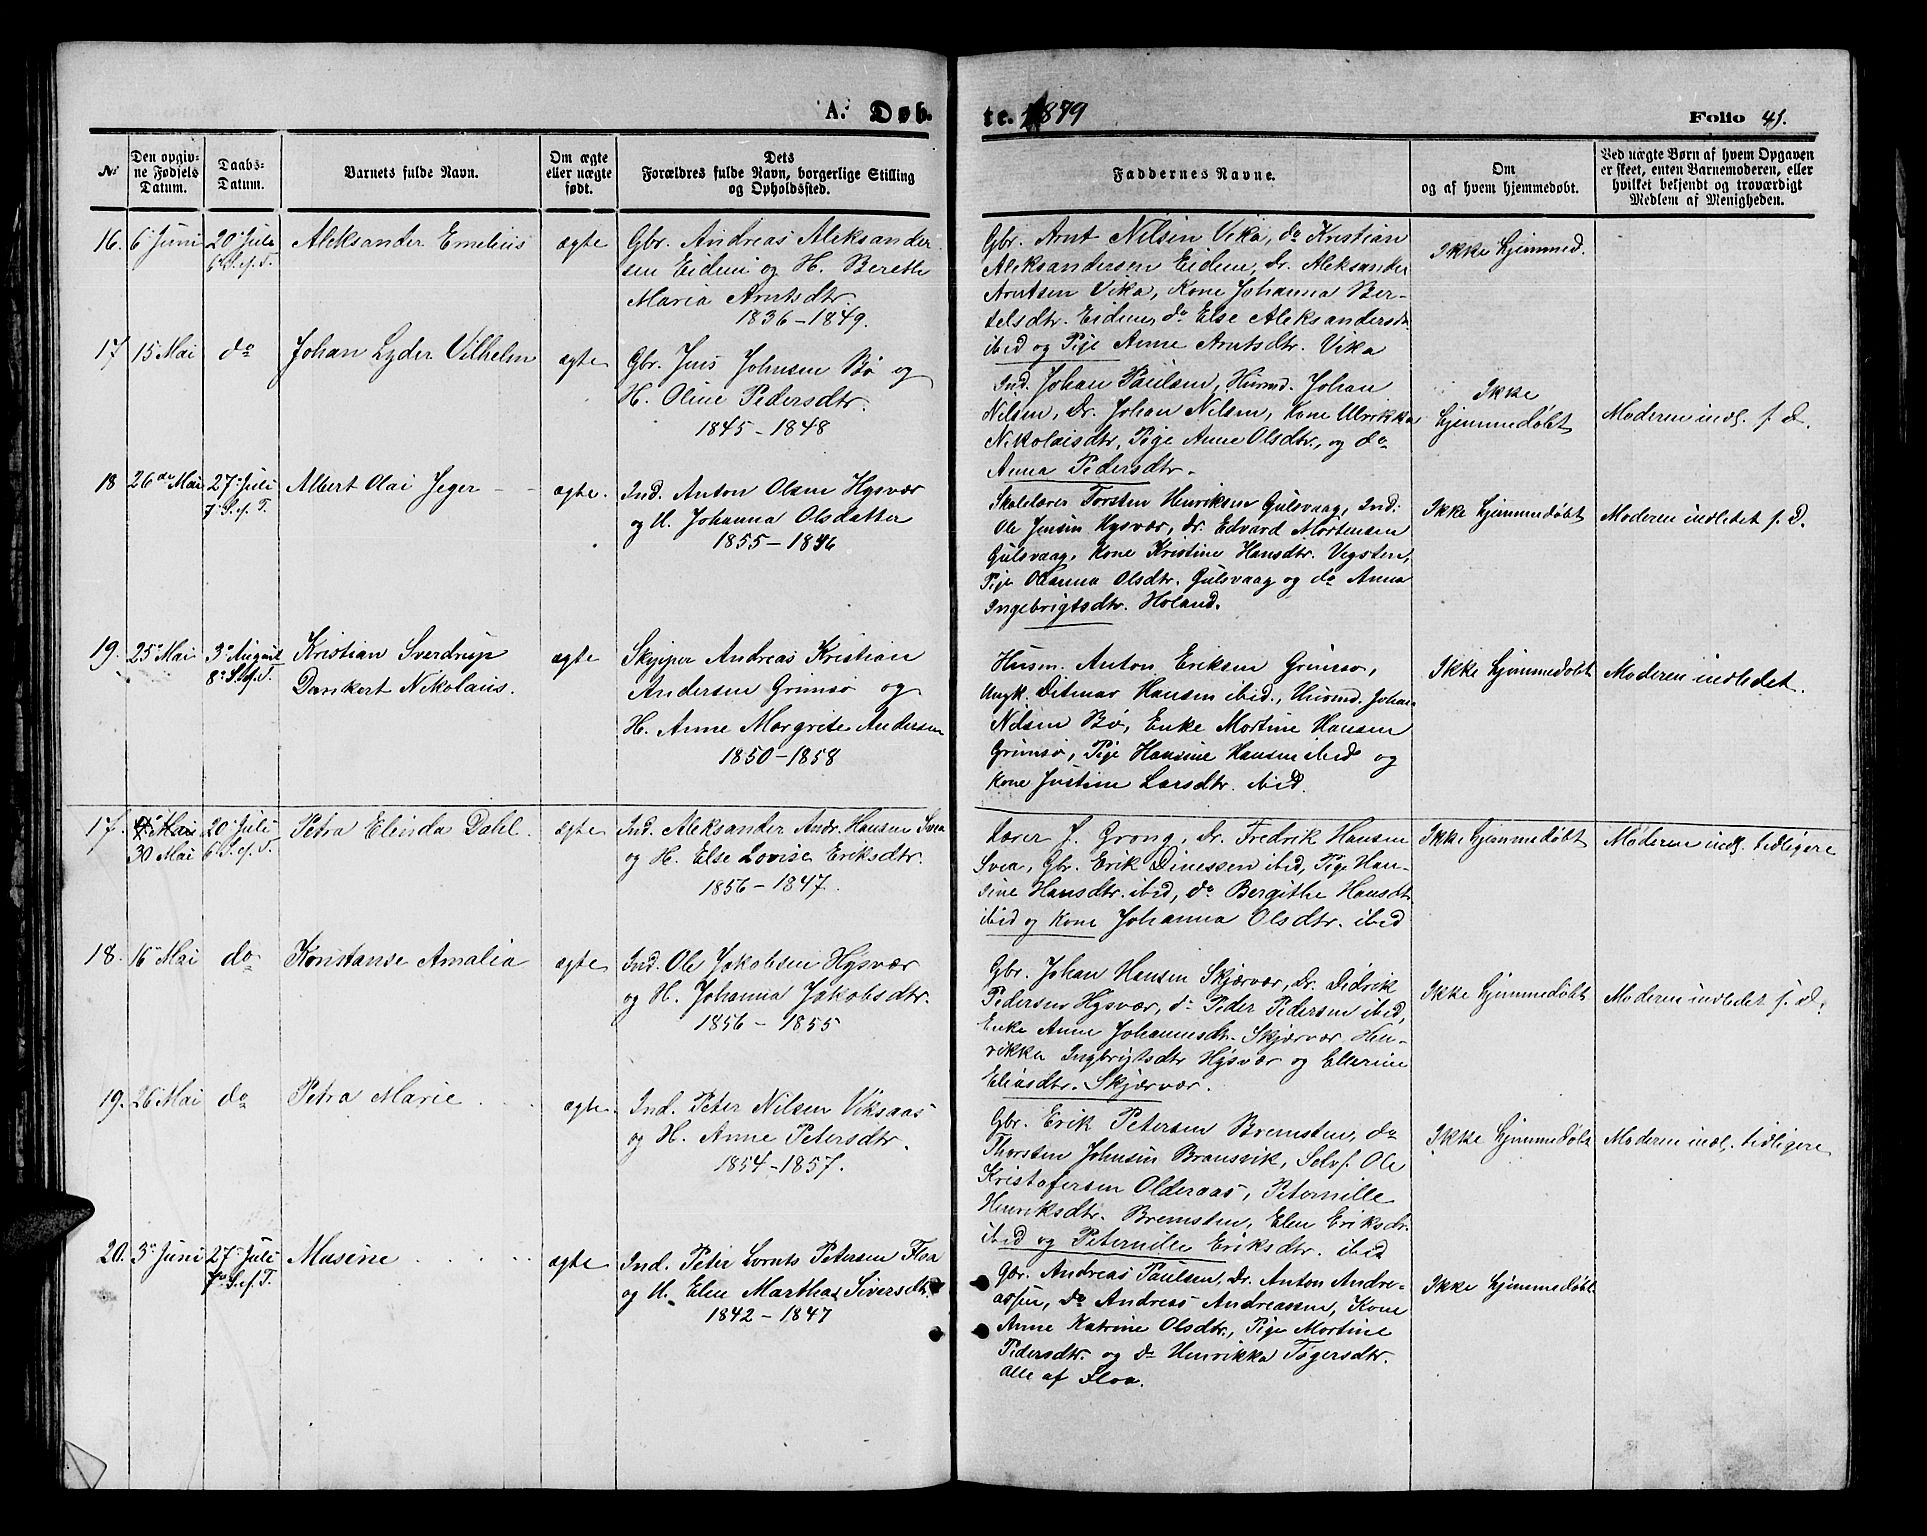 A. Døb-
te. 1879
Folio 41.
No
Den opgiv-
ne Fødsels
Datum.
Daabs-
Datum.
Barnets fulde Navn.
Om ægte
eller uægte
født.
Dets
Forældres fulde Navn, borgerlige Stilling
og Opholdssted.
Faddernes Navne.
Om
og af hvem hjemmedøbt.
Ved uægte Børn af hvem Opgaven
er skeet, enten Barnemoderen, eller
hvilket bekjendt og troværdigt
Medlem af Menigheden.
16. 6 Juni 20 Juli
6 S. e. T.
Aleksander Emelius
ægte
Gbr. Andreas Aleksander
sen Eidem og H. Berethe
Maria Arntsdtr.
1836-1849.
Gbr. Arnt Nilsen Vika, do Kristian
Aleksandersen Eidem, Dr. Aleksander
Arntsen Vika, Kone Johanna Ber-
telsdtr. Eidem, do Else Aleksandersdtr
ibid og Pige Anne Arntsdtr. Vika
Ikke hjemmed.
17 15 Mai do
Johan Lyder Vilhelm
ægte
Gbr. Jens Johnsen Bø og
H. Oline Pedersdtr.
1845-1848
Ind. Johan Paulsen, Huusmd. Johan
Nilsen, Dr. Johan Nilsen, Kone Ulrikka
Nikolaisdtr, Pige Anne Olsdtr, og do
Anna Pedersdtr.
Ikke
hjemmedøbt
Moderen indl. f. D.
18 26de Mai 27 Juli
7 S. e. T.
Albert Olai Jeger
ægte.
Ind. Anton Olsen Hysvær
og H. Johanna Olsdatter
1855-1846
Skolelærer Torsten Henriksen Gulsvaag, Ind.
Ole Jensen Hysvær, Dr. Edvard Mortensen
Gulsvaag, Kone Kristine Hansdtr. Vegsten,
Pige Oleanna Olsdtr. Gulsvaag og do Anna
Ingebrigtsdtr. Holand.
Ikke hjemmedøbt
Moderen indledet f. D.
19. 25 Mai 3 August
8 S. e. T.
Kristian Sverdrup
Dankert Nikolaus.
ægte
Skipper Andreas Kristian
Andersen Grimsø og
H. Anne Margrete Andersen
1850-1858
Husm. Anton Eriksen Grimsø,
Ungk. Ditmar Hansen ibid., Huusmd. Johan
Nilsen Bø, Enke Mortine Hansen
Grimsø, Pige Hansine Hansen ibid og
Kone Justine Larsdtr. ibid.
Ikke hjemmedøbt
Moderen indledet.
17. 30 Mai 20 Juli
6 S. e. T.
Petra Elinda Dahl.
ægte
Ind. Aleksander Andr. Hansen Svea
og H. Else Lovise Eriksdtr.
1856-1847.
Lærer J. Grong, Dr. Fredrik Hansen
Svea, Gbr. Erik Dinessen ibid, Pige Han-
sine Hansdtr. ibid, do Bergithe Hansdtr
ibid og Kone Johanna Olsdtr. ibid
Ikke hjemmedøbt
Moderen indl. tidligere
18. 16 Mai do
Konstanse Amalia
ægte
Ind. Ole Jakobsen Hysvær
og H. Johanna Jakobsdtr.
1856-1855
Gbr. Johan Hansen Skjærvær, Dr. Didrik
Pedersen Hysvær, do Peder Pedersen ibid,
Enke Anne Johannesdtr. Skjærvær, Hen-
rikka Ingbrigtsdtr Hysvær og Ellerine
Eliasdtr. Skjærvær.
Ikke hjemmedøbt
Moderen indledet f. D.
19. 26 Mai do
Petra Marie
ægte.
Ind. Peter Nilsen Viksaas
og H. Anne Petersdtr.
1854-1857.
Gbr. Erik Petersen Bremsten, do
Thorsten Johnsen Brausvik, Selvf. Ole
Kristofersen Olderaas, Peternille
Henriksdtr. Bremsten, Elen Eriksdtr.
ibid og Peternille Eriksdtr. ibid
Ikke hjemmedøbt
Moderen indl. tidligere
20. 3 Juni 27 Juli
7 S. e. T.
Musine
ægte
Ind. Peter Lornts Petersen Floa
og H. Elen Martha Siversdtr.
1842-1847
Gbr. Andreas Paulsen, Dr. Anton Andre-
assen, do Andreas Andreassen, Kone
Anne Katrine Olsdtr., Pige Mortine
Pedersdtr. og do Henrikka Tøgersdtr.
alle af Floa.
Ikke hjemmedøbt